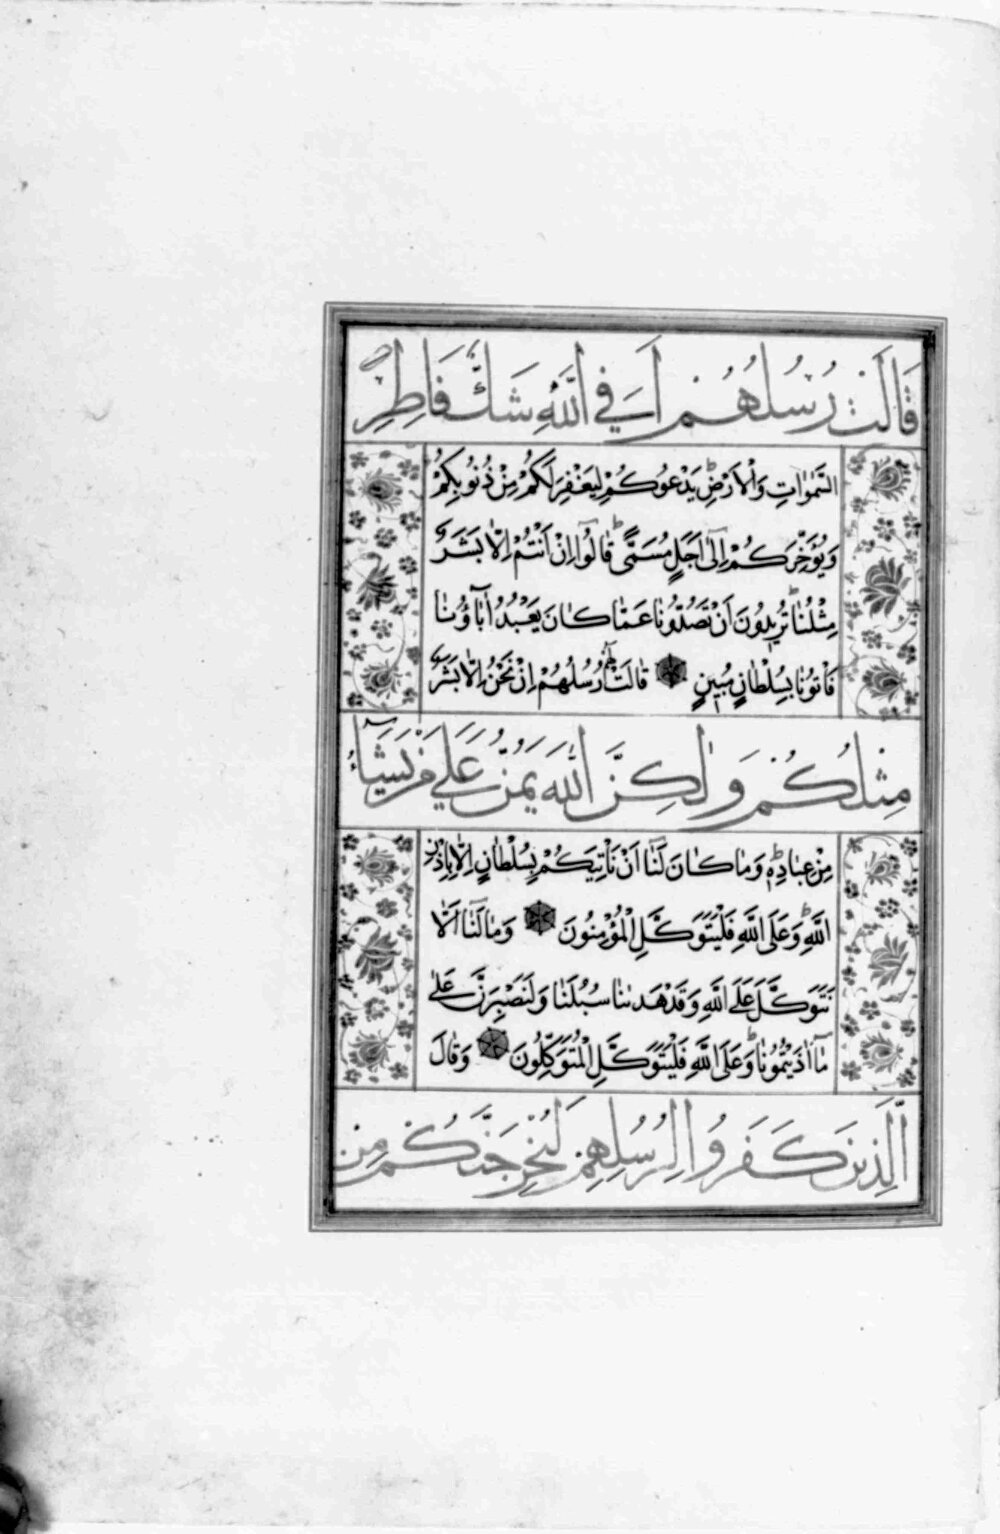 قَالَتْ رُسُلُهُمْ اَفِي اللّٰهِ شَكٌّ فَاطِرِ
السَّمٰوَاتِ وَالْاَرْضِ يَدْعُوكُمْ لِيَغْفِرَ لَكُمْ مِنْ ذُنُوبِكُمْ
وَيُؤَخِّرَكُمْ اِلٰٓى اَجَلٍ مُسَمًّى قَالُٓوا اِنْ اَنْتُمْ اِلَّا بَشَرٌ
مِثْلُنَا تُرِيدُونَ اَنْ تَصُدُّونَا عَمَّا كَانَ يَعْبُدُ اٰبَٓاؤُنَا
فَاْتُونَا بِسُلْطَانٍ مُبِينٍ قَالَتْ لَهُمْ رُسُلُهُمْ اِنْ نَحْنُ اِلَّا بَشَرٌ
مِثْلُكُمْ وَلٰكِنَّ اللّٰهَ يَمُنُّ عَلٰى مَنْ يَشَٓاءُ
مِنْ عِبَادِهٖ وَمَا كَانَ لَنَٓا اَنْ نَاْتِيَكُمْ بِسُلْطَانٍ اِلَّا بِاِذْنِ
اللّٰهِ وَعَلَى اللّٰهِ فَلْيَتَوَكَّلِ الْمُؤْمِنُونَ وَمَا لَنَٓا اَلَّا
نَتَوَكَّلَ عَلَى اللّٰهِ وَقَدْ هَدٰينَا سُبُلَنَا وَلَنَصْبِرَنَّ عَلٰى
مَٓا اٰذَيْتُمُونَا وَعَلَى اللّٰهِ فَلْيَتَوَكَّلِ الْمُتَوَكِّلُونَ وَقَالَ
الَّذِينَ كَفَرُوا لِرُسُلِهِمْ لَنُخْرِجَنَّكُمْ مِنْ